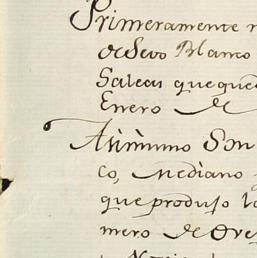 Primeramente
de Sevo Blanco
Salcas que que
Enero de
Asimismo Son
co, Mediano
que produjo lo
mero de Ove